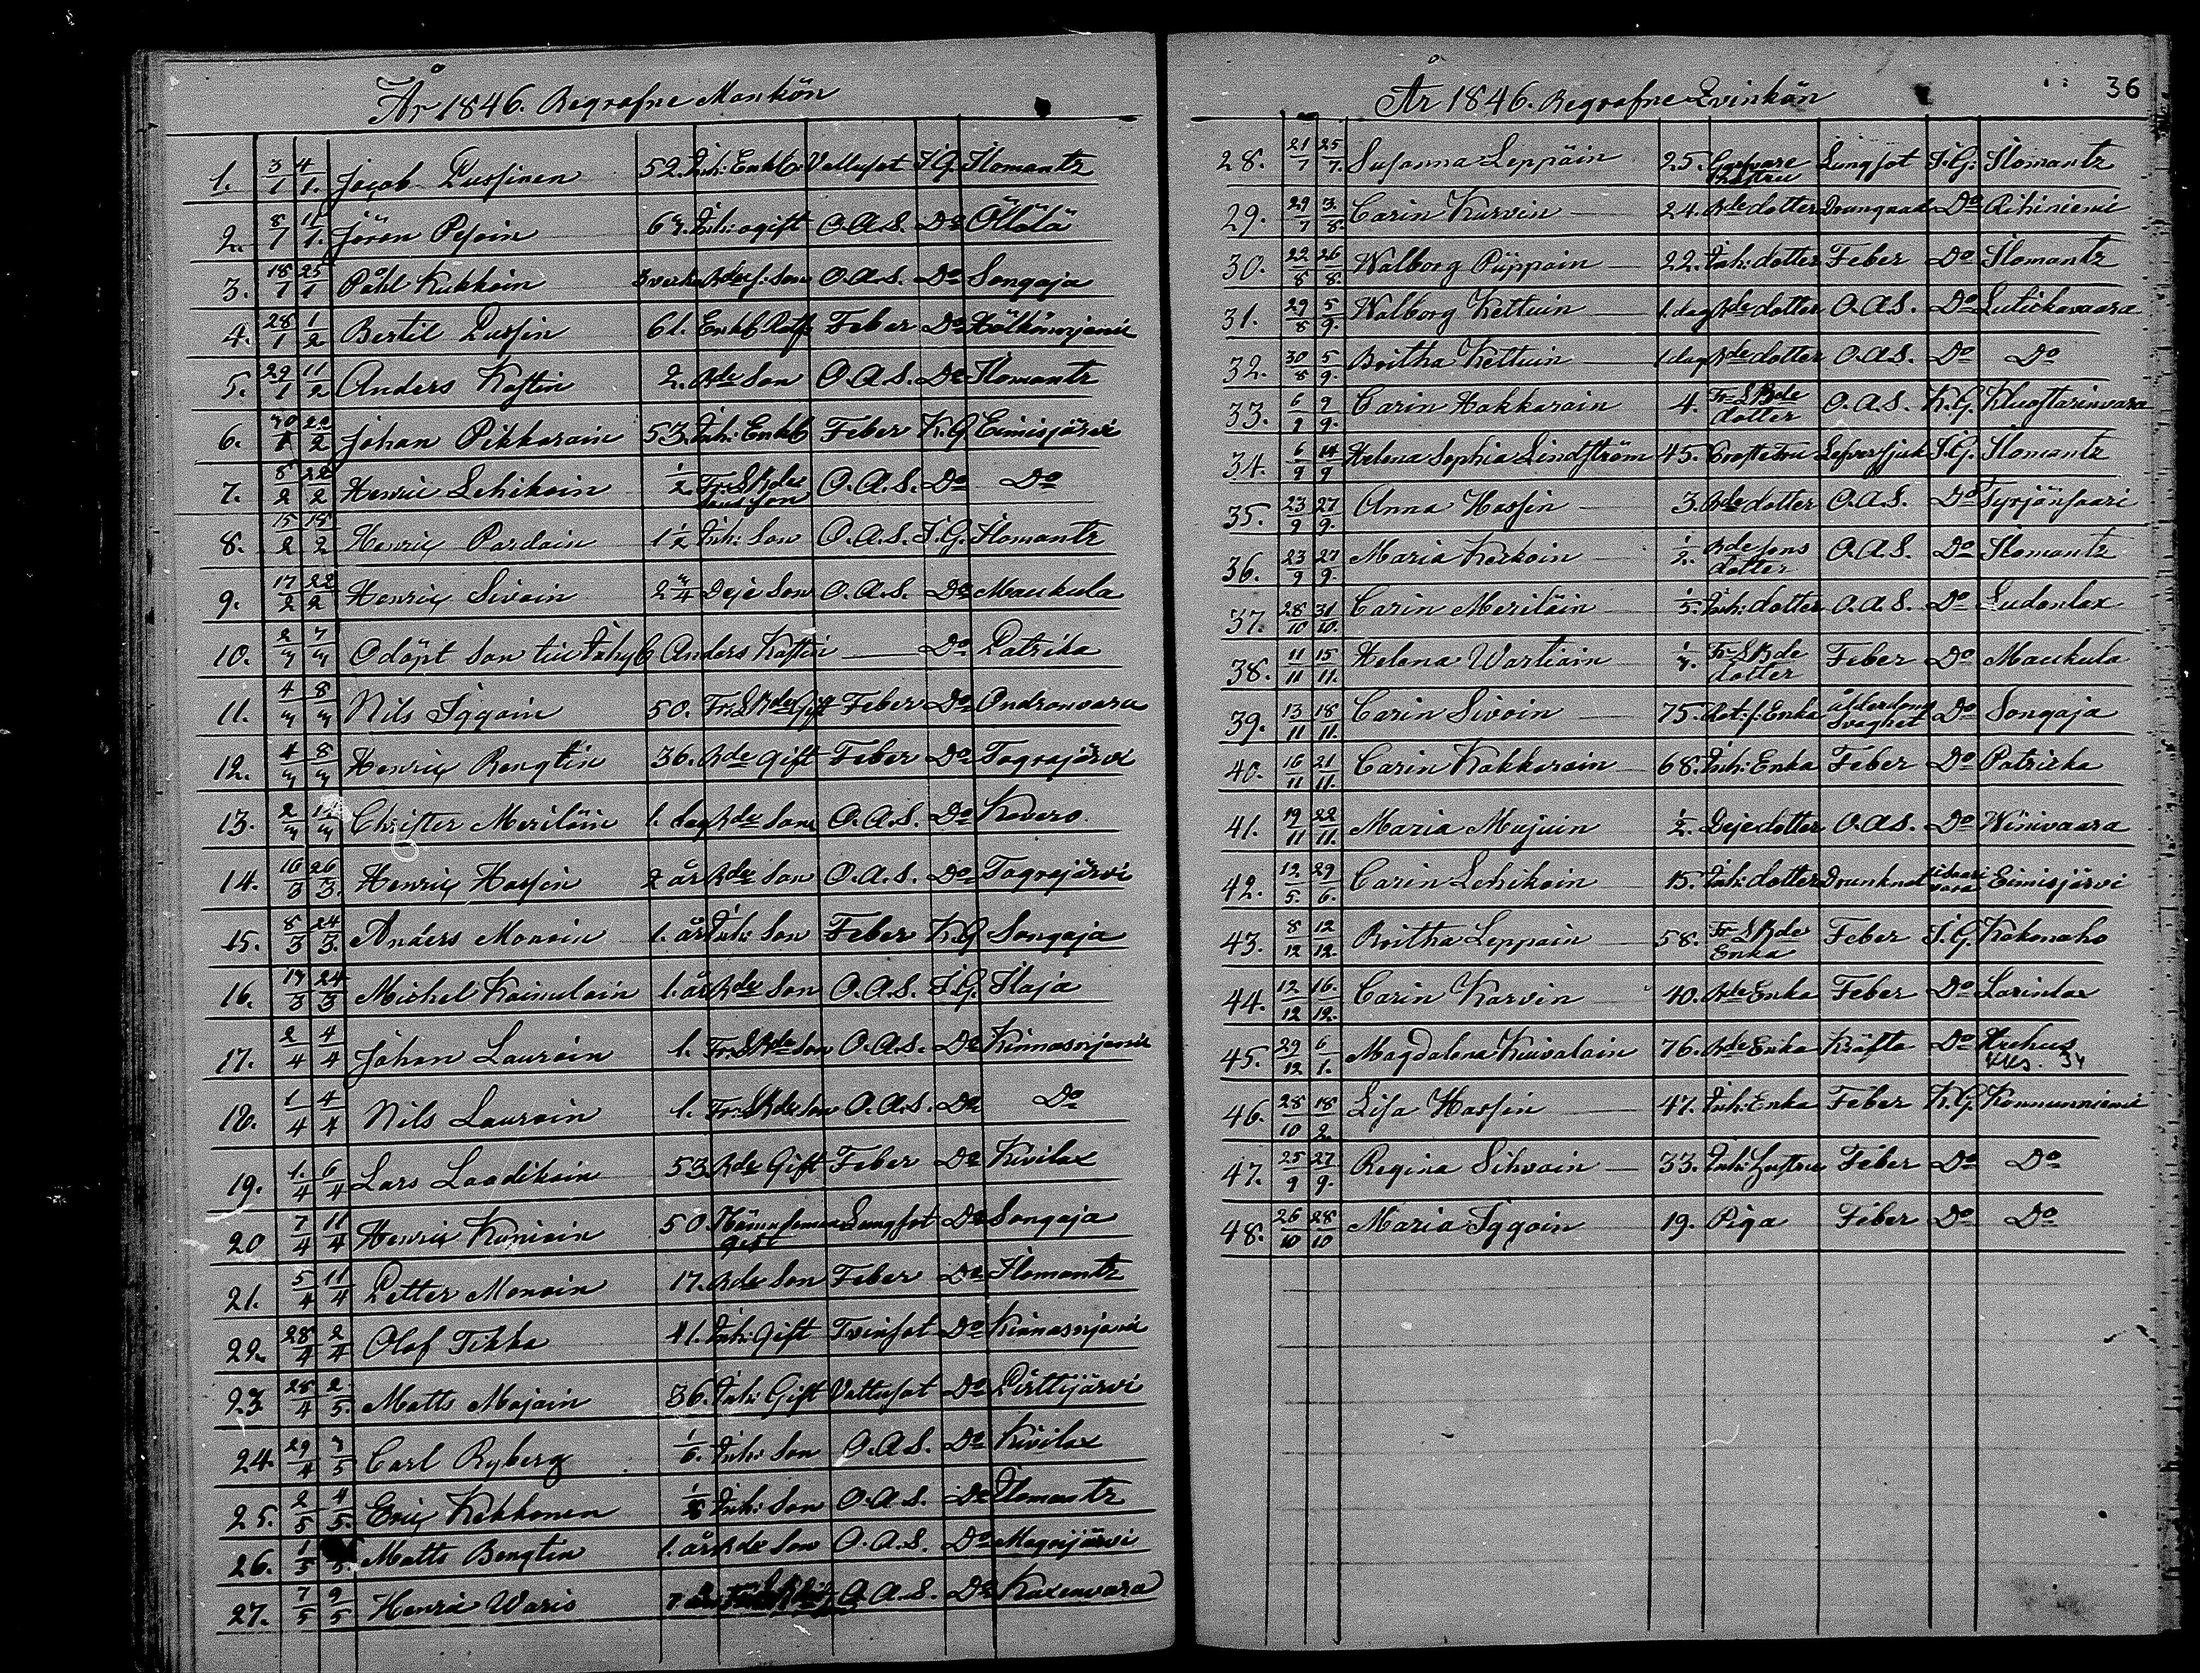 År 1846. Begrafne Mankön
1. 3/1 4/1. Jacob Pussinen 52. Inh: Enkl. Vattusot I.G. Ilomantz
2. 8/1 11/1. Jöran Pesoin 63. Inh: ogift O.A.S. Do Ölölä
3. 18/1 25/1 Påhl Kukkoin O.A.S. Do Songaja
4. 28/1 1/2 Bertil Pussin 61. Enkl. Feber Do
5. 29/1 11/2 Anders Koftin 2. Bde Son O.A.S. Do Ilomantz
6. 30/1 22/2 Johan Pikkarain 53. Inh: Enkl. Feber K.G Eimisjärvi
7. 8/2 22/2 Henric Lehikoin 1/2 Fr: SBdes sons son O.A.S. Do Do
8. 15/2 18/2 Henric Pardain 1 1/2 Inh: Son O.A.S. I.G. Ilomantz
9. 17/2 22/2 Henric Sivoin 2 3/4 Deje Son O.A.S. Do Maukula
10. 2/3 7/3 Odöpt Son till Inhys Anders Koftin Do Patrika
11. 4/3 8/3 Nils Iggoin 50. Fr: SBde Gift Feber Do Ondronvara
12. 4/3 8/3 Henric Bengtin 36. Bde gift Feber Do Togrojärvi
13. 2/3 Christer Meriläin 1. dag Bde Son O.A.S. Do Kovero.
14. 16/3 26/3. Henric Hassin 2 år Bde Son O.A.S. Do Togrojärvi
15. 8/3 24/3. Anders Monoin 1. år Inh: Son Feber K.G Songaja
16. 17/3 24/3 Michel Kainulain 1. år Bde Son O.A.S. I.G. Ilaja
17. 2/4 4/4 Johan Lauroin 1. Fr: SBde Son O.A.S. Do Kinnasniemi
18. 1/4 4/4 Nils Lauroin 1. Fr: SBde Son O.A.S. Do Do
19. 1./4 6/4 Lars Laadikain 53. Bde Gift Feber Do Kivilax
20 7/4 11/4 Henric Kunioin 50. gift Lungsot Do Songaja
21. 5/4 11/4 Petter Monoin 17. Bde Son Feber Do Ilomantz
22. 28/4 2/4 Olof Tikka 41. Inh: Gift Tvinsot Do Kinnasniemi
23. 28/4 2/5. Matts Majoin 36. Inh: Gift Vattusot Do Pirttijärvi
24. 29/4 3/5 Carl Ryberg 1/6. Inh: Son O.A.S. Do Kivilax
25. 2/5 4/5. Eric Kekkonen Inh: Son O.A.S. Do Ilomantz
26. 1/5 Matts Bengtin 1. år Bde Son O.A.S. Do
27. 7/5 9/5 Henric Waris O.A.S. Do Kaxenvara
36
År 1846. Begrafne Qvinkön
28. 21/7 25/7. Susanna Leppäin 25. Lungsot I.G. Ilomantz
29. 29/7 3./8. Carin Kurvin 24. Bde dotter Do
30. 22/8 26/8. Walborg Piippoin 22. Inh: dotter Feber Do Ilomantz
31. 29/8 5/9. Walborg Kettuin 1. dag Bde dotter O.A.S. Do Lutickovaara
32. 30/8 5/9. Britha Kettuin 1 dag Bde dotter O.A.S. Do Do
33. 6/9 9/9. Carin Hakkarain 4. Fr: SBde dotter O.A.S. K.G.
34. 6/9 14/9 Helena Sophia Lindström 45. Lefversjuk I.G. Ilomantz
35. 23/9 27/9. Anna Hassin 3. Bde dotter O.A.S. Do Syrjänsaari
36. 23/9 27/9. Maria Keckoin 1/2. Bde sons dotter O.A.S. Do Ilomantz
37. 28/10 31/10. Carin Meriläin 1/5. Inh: dotter O.A.S. Do Sudonlax
38. 11/11 15/11. Helena Wartiain Fr: SBde dotter Feber Do Maukula
39. 13/11 18/11. Carin Sivoin 75. Rot: f: Enka ålderdoms Svaghet Do Songaja
40. 16/11 21/11. Carin Kakkarain 68. Inh: Enka Feber Do Patricka
41. 19/11 22/11. Maria Mujuin 1/2. Deje dotter O.A.S. Do Winivaara
42. 12/5. 29/6. Carin Lehikoin 15. Inh: dotter Drunknat Eimisjärvi
43. 8/12 12/12. Britha Leppoin 58. Fr: SBde Enka Feber I.G. Kokonaho
44. 12/12 16./12. Carin Karvin 40. Bde Enka Feber Do Larinlax
45. 29/12 6/1. Magdalena Kuivalain 76. Bde Enka Kräfta Do
46. 28/10 18/2. Lisa Hassin 47. Inh: Enka Feber K.G. Konnunniemi
47. 25/9 27/9. Regina Sihvoin 33. Inh: Hustru Feber Do Do
48. 26/10 28/10 Maria Iggoin 19. Piga Feber Do Do